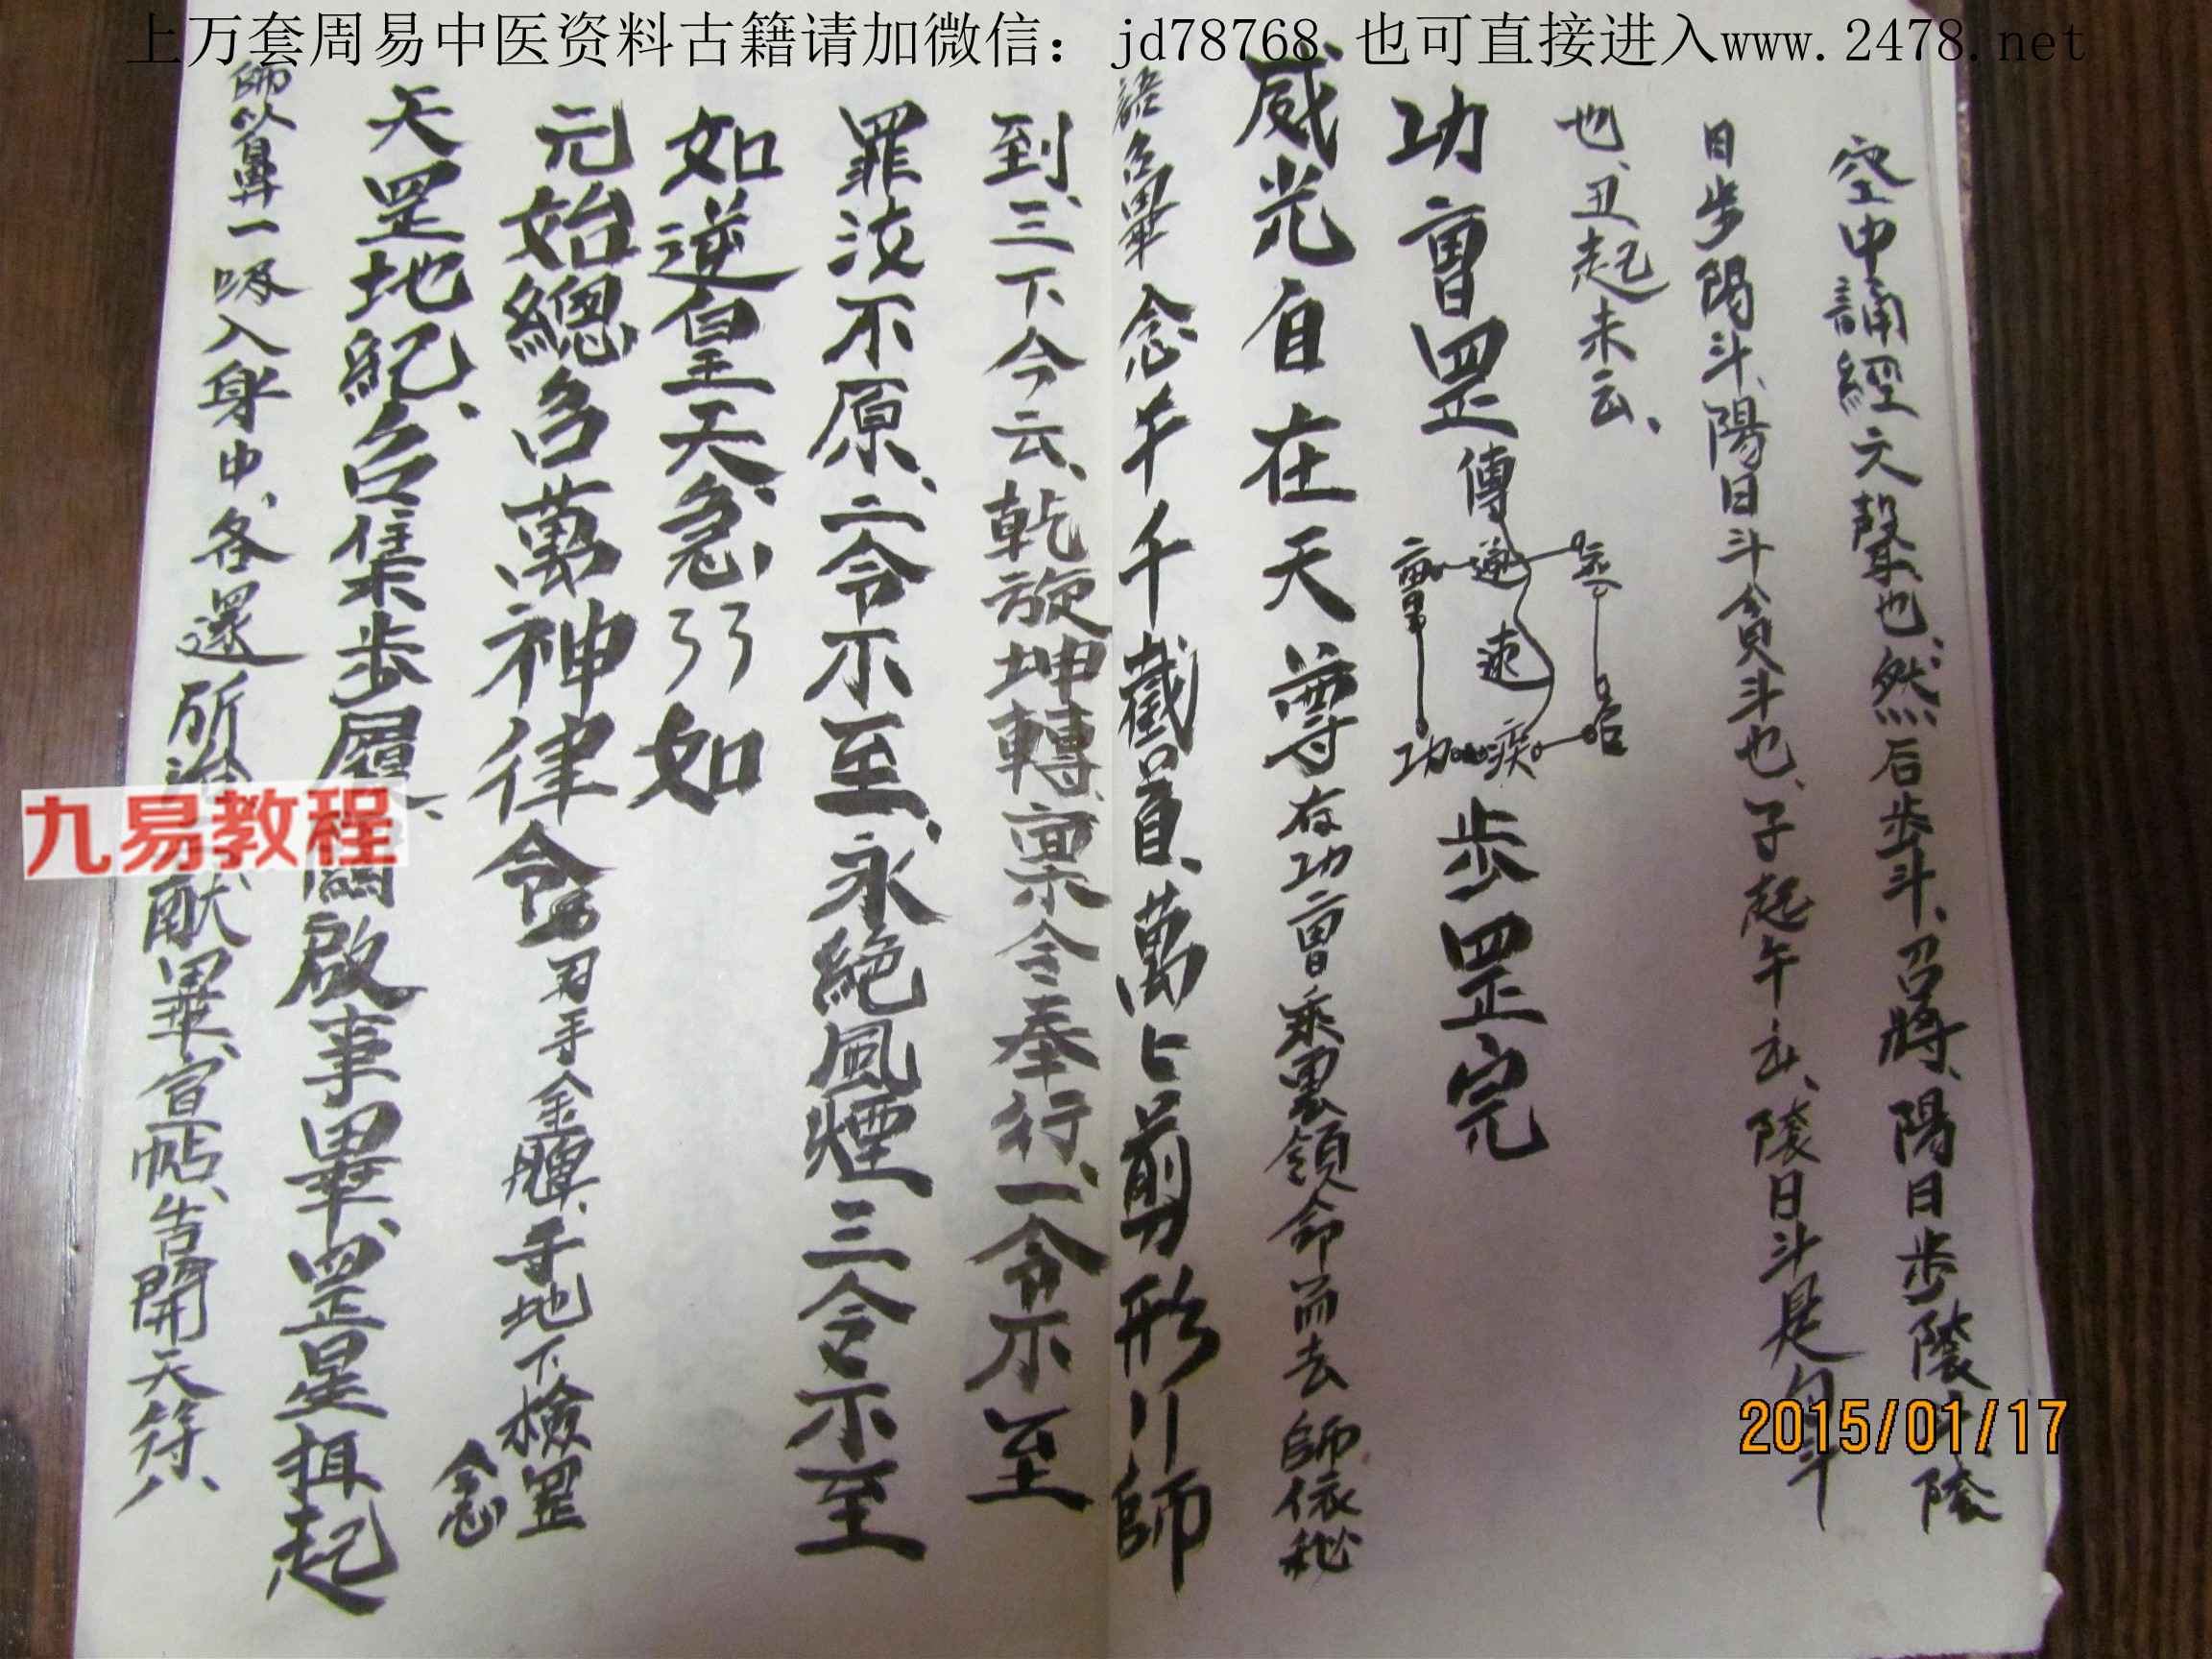 上万套周易中医资料古籍请加微信： jd78768 也可直接进入www.2478.net
空中誦經文聲也、然后步斗、召將、陽日步陰斗、陰
日步陽斗、陽日斗貪斗也、子起午云、陰日斗是
也、丑起未云、
功曹罡傳
功曹
送
速
疾
步罡完
威光自在天尊存功曹乘雲領命而去師依秘
念千千截首、萬萬剪形師
到、三下令云、乾旋坤轉、稟令奉行、一令不至
罪汝不原、二令不至、永絕風煙三令不至
如逆皇天急
如
元始總召萬神律令
手地下檢罡
念
天罡地紀、召集步履、啟事畢、罡星扭起
師以鼻一吸入身中、各還所治献畢、宣帖、告開天符、
九易教程
2015/01/17